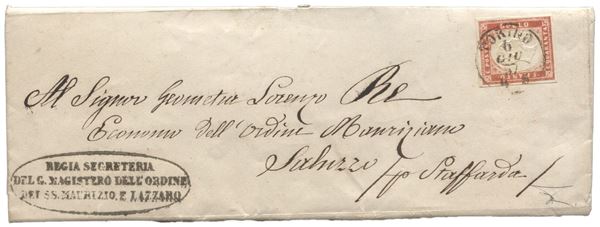 TORINO
6
GIU
57
Al Signor Geometra Lorenzo Re
Economo dell'Ordine Mauriziano
Saluzzo /p Staffarda/
REGIA SEGRETERIA
DEL G. MAGISTERO DELL'ORDINE
DEI SS. MAURIZIO, E LAZZARO